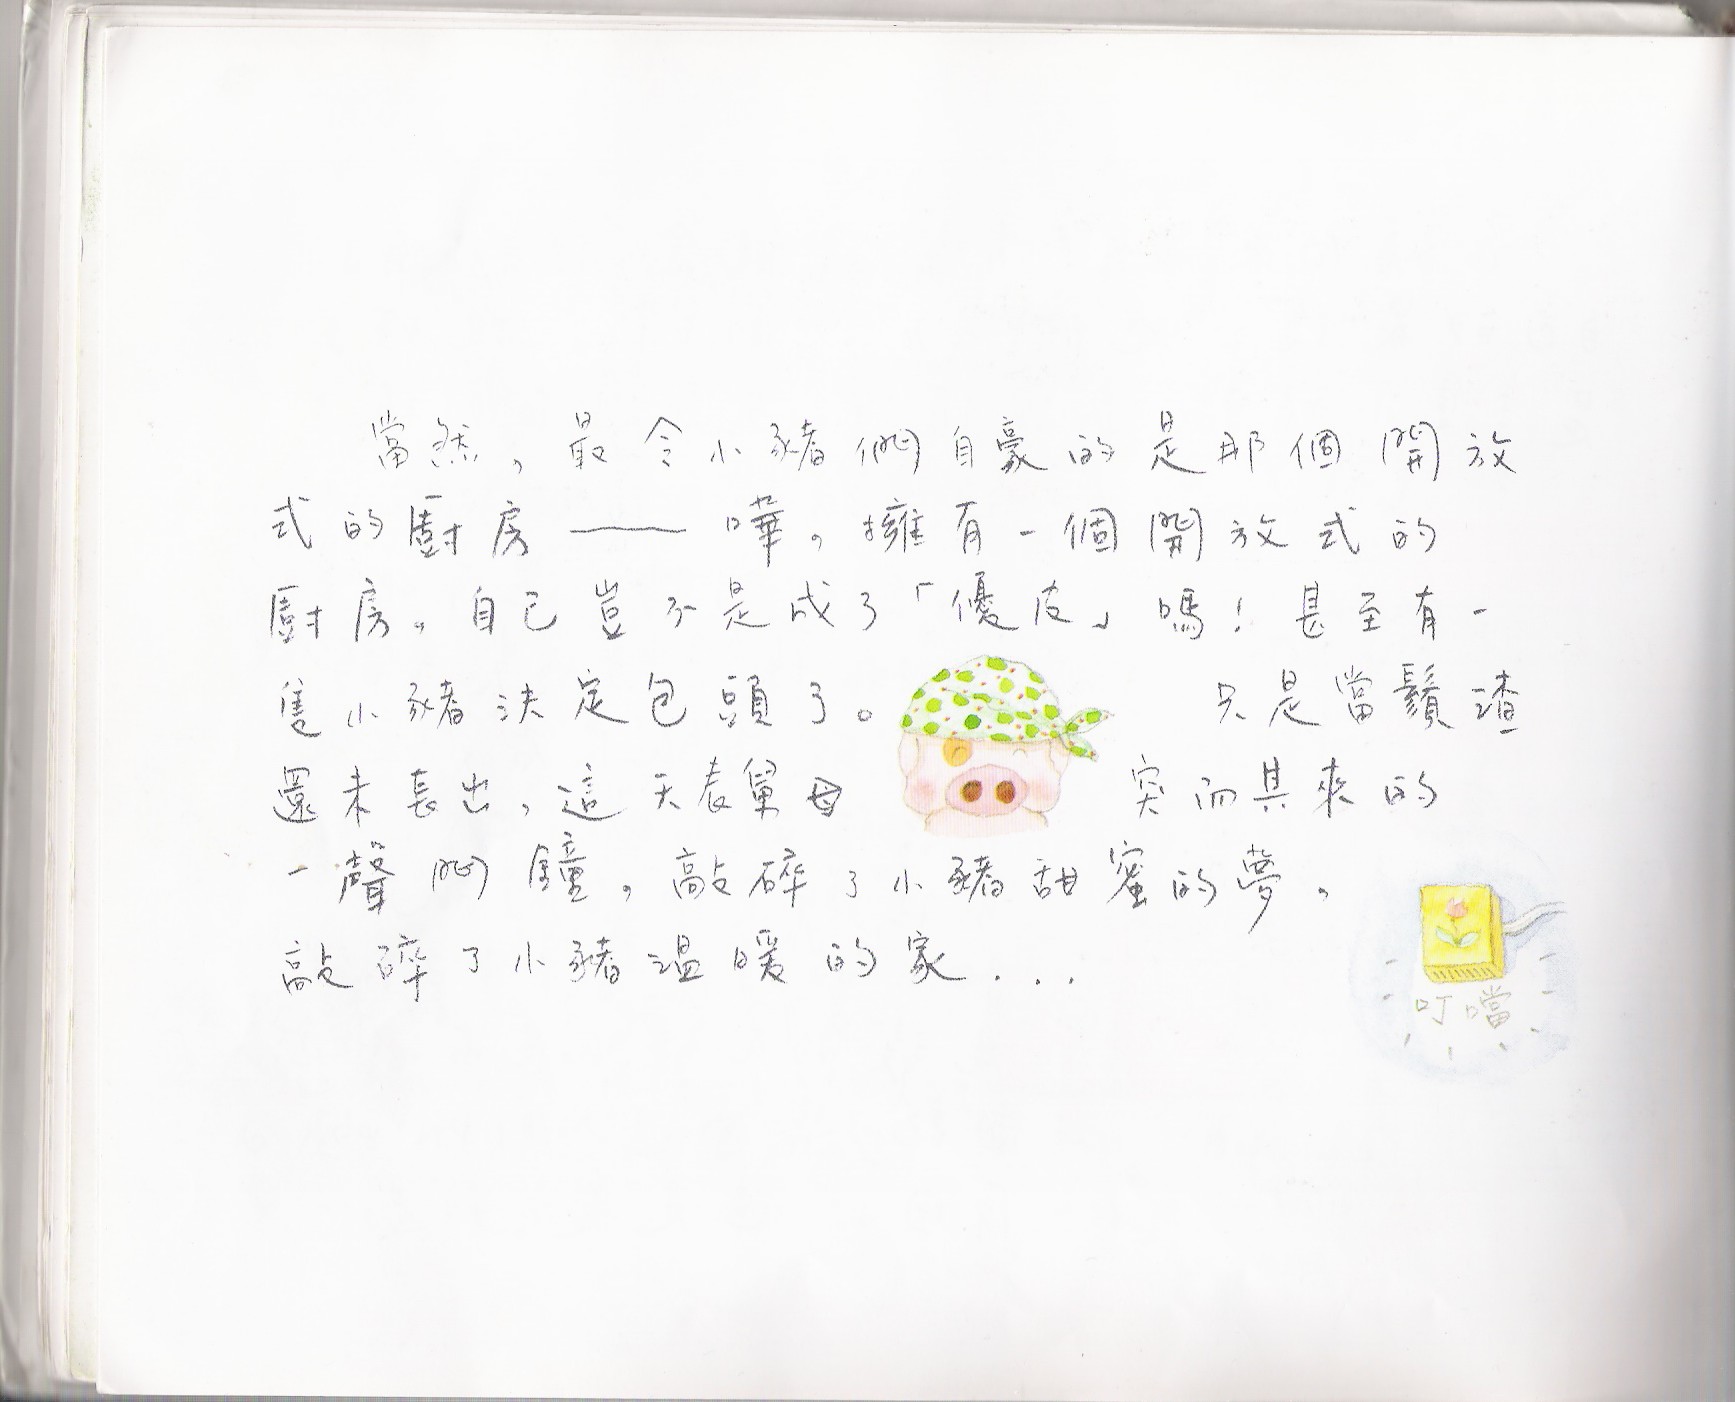 當然，最令小豬們自豪的是那個開放
式的廚房——嘩。擁有一個開放式的
廚房。自己豈不是成了「優皮」嗎！甚至有一
隻小豬決定包頭了。只是當鬚渣
還未長出，這天表舅母突而其來的
一聲門鐘，敲碎了小豬甜蜜的夢，
敲碎了小豬溫暖的家...
叮噹